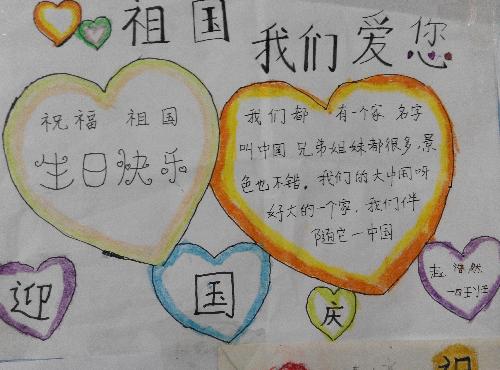 祖国
我们爱您
祝福 祖国
生日快乐
我们都 有一个家 名字
叫中国 兄弟姐妹都很多,景
色也不错。我们的大中国呀
好大的一个家,我们伴
随它一中国
迎
国
庆